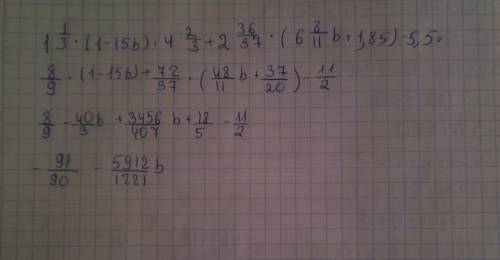 1 1/3 · (1-15b) · 4 2/3 + 2 36/37 · (6 3/11 b + 1,85) - 5,5 =
8/9 · (1-15b) + 72/37 · (48/11 b + 37/20) - 11/2
8/9 - 40/3 b + 3456/407 b + 18/5 - 11/2
- 91/90 - 5912/1221 b